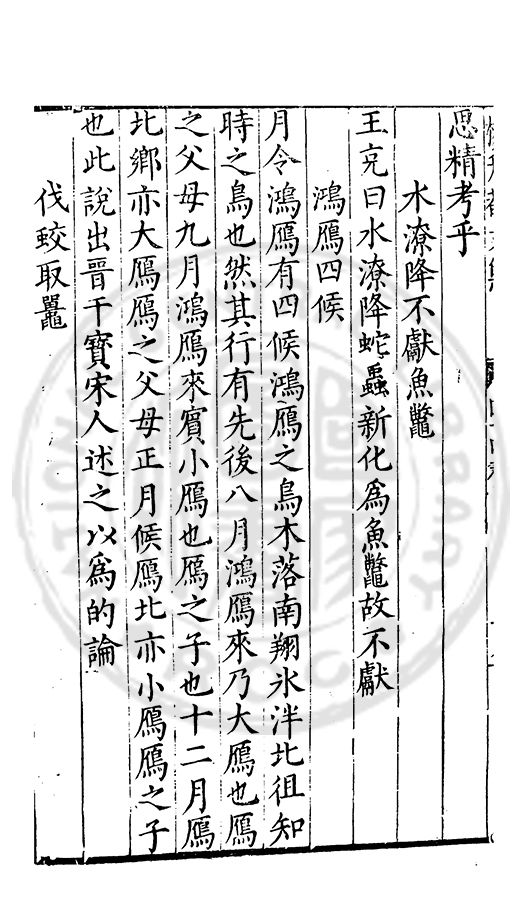 思精考乎
水潦降不獻魚鼈
王充曰水潦降蛇蟲新化爲魚鼈故不獻
鴻鴈四候
月令鴻鴈有四候鴻鴈之鳥木落南翔氷泮北徂知
時之鳥也然其行有先後八月鴻鴈來乃大鴈也鴈
之父母九月鴻鴈來賓小鴈也鴈之子也十二月鴈
北鄉亦大鴈鴈之父母正月候鴈北亦小鴈鴈之子
也此說出晋干寶宋人述之以爲的論
伐蛟取鼉